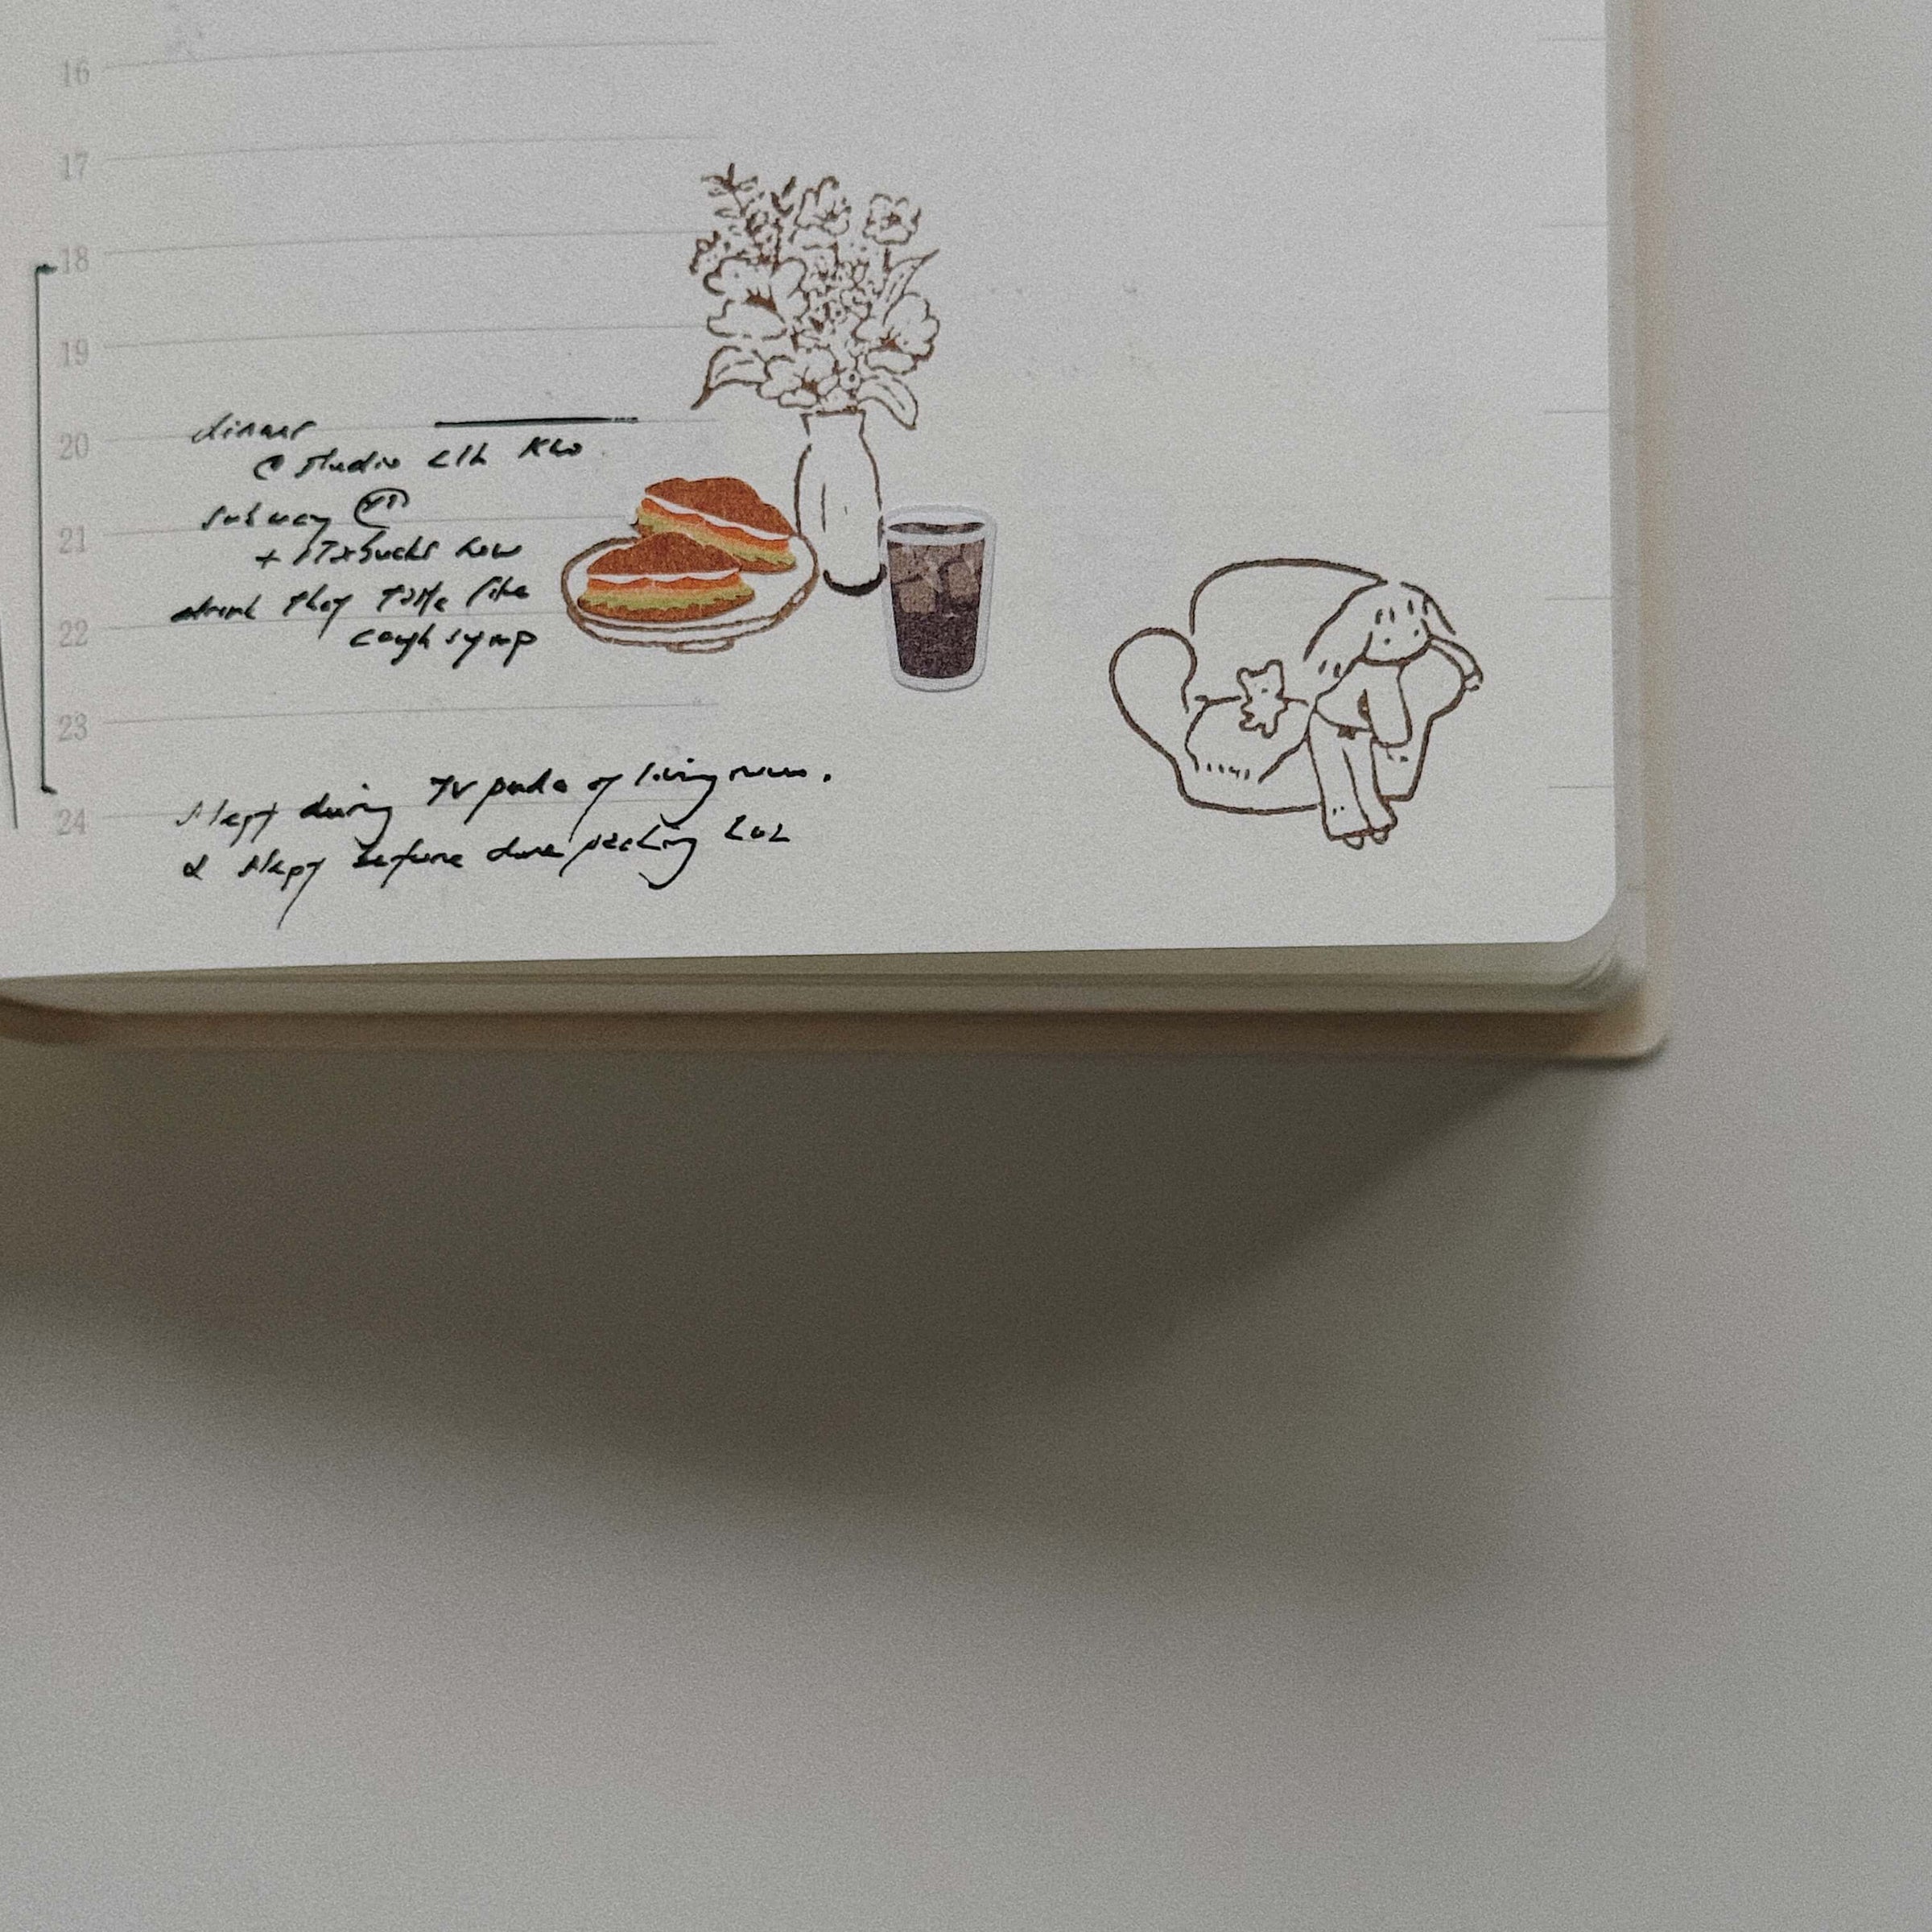 16
17
18
19
20
21
22
23
24
dinner
@ studio
subway
+ starbucks new
drink they taste like
cough syrup
slept during TV of living room.
& slept before done packing LOL